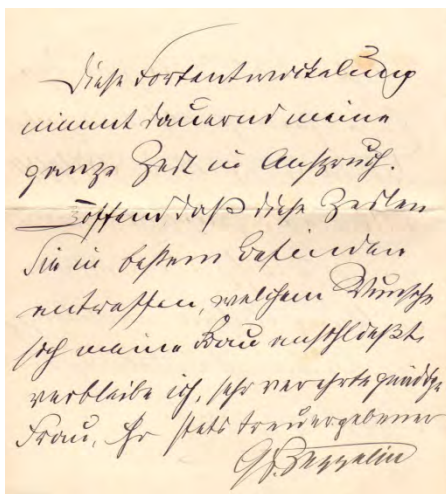 Diese Fortentwickelung
nimmt dauernd meine
ganze Zeit in Anspruch.
Hoffend daß diese Zeilen
Sie in bestem Befinden
antreffen, welchem Wunsche
sich meine Frau anschließt,
verbleibe ich, sehr verehrte gnädige
Frau, Ihr stets treuergebener
Gf. Zeppelin